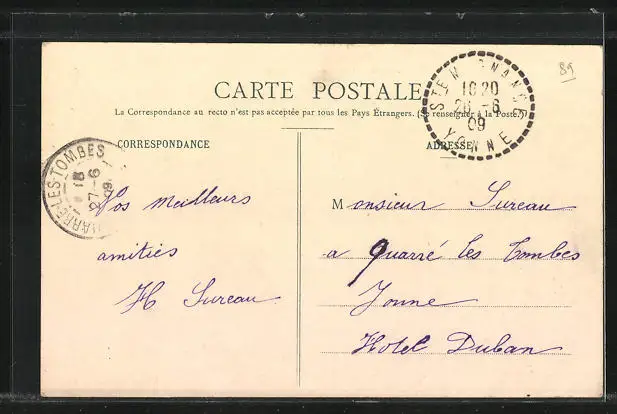 89
CARTE POSTALE
La Correspondance au recto n'est pas acceptée par tous les Pays Étrangers. (Se renseigner à la Poste.)
CORRESPONDANCE
ADRESSE
10 20
26 -6
09
YONNE
QUARRÉ-LES-TOMBES
27-6
09
Vos meilleurs
amitiés
H Sureau
Monsieur Sureau
a Quarré les Tombes
Yonne
Hotel Duban